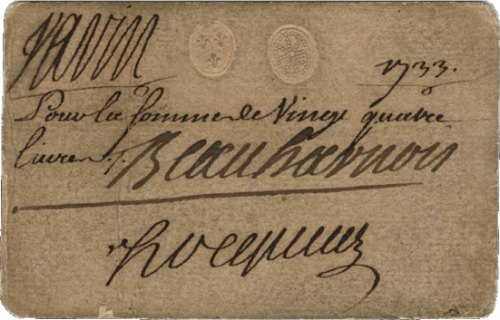 Varin
1733.
Pour la somme de Vingt quatre
livres. Beauharnois
hocquart